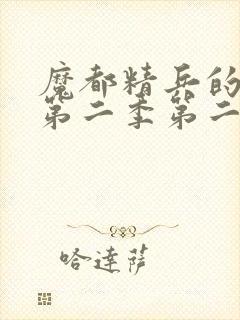 魔都精兵的
第二季第二
哈達薩